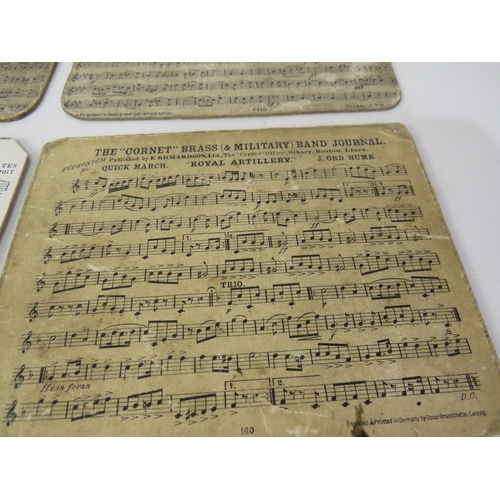 THE "CORNET" BRASS (& MILITARY) BAND JOURNAL.
EUPHONIUM Published by F. RICHARDSON, Ltd., The "Cornet" Office, Sibsey, Boston, Lincs.
QUICK MARCH. "ROYAL ARTILLERY." J. ORD HUME.
1. 2.
TRIO.
p p
f p
ff con forza
1. 2.
D.C.
160
Engraved & Printed in Germany by Oscar Brandstetter, Leipzig.